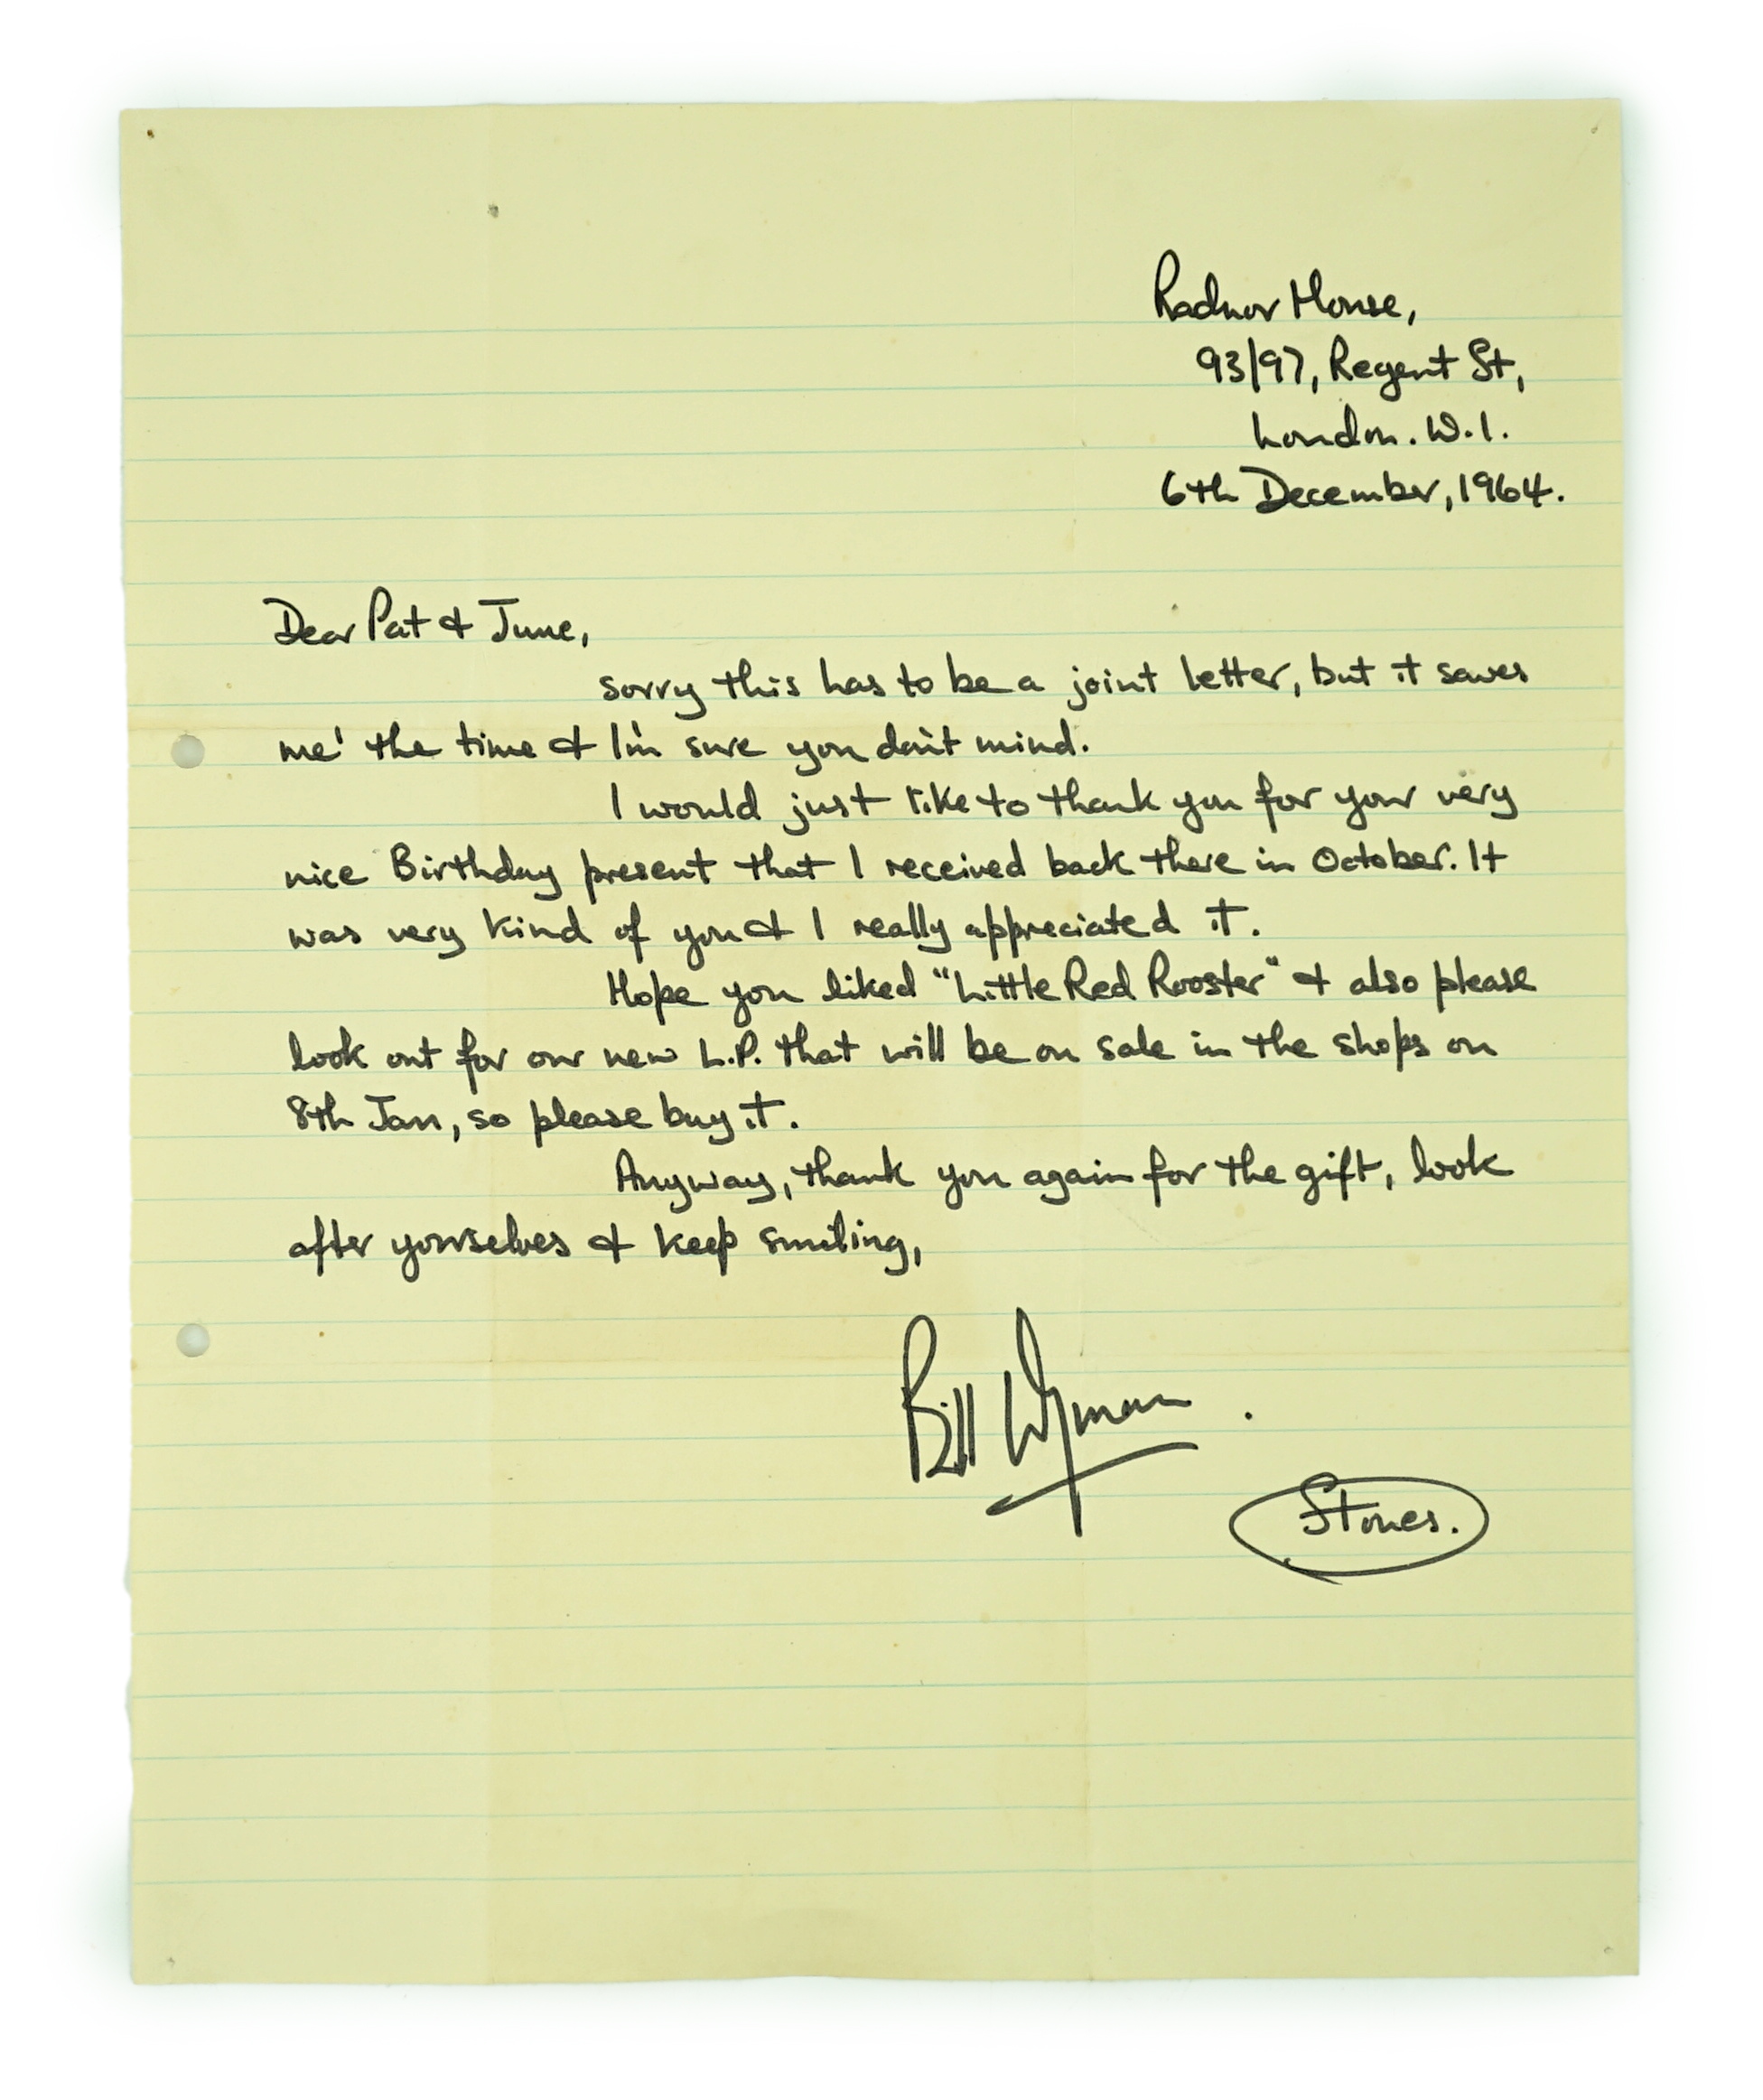 Radnor House,
93/97, Regent St,
London. W.1.
6th December, 1964.
Dear Pat & June,
sorry this has to be a joint letter, but it saves
me' the time & I'm sure you don't mind.
I would just like to thank you for your very
nice Birthday present that I received back there in October. It
was very kind of you & I really appreciated it.
Hope you liked "Little Red Rooster" & also please
look out for our new L.P. that will be on sale in the shops on
8th Jan, so please buy it.
Anyway, thank you again for the gift, look
after yourselves & keep smiling,
Bill Wyman.
Stones.